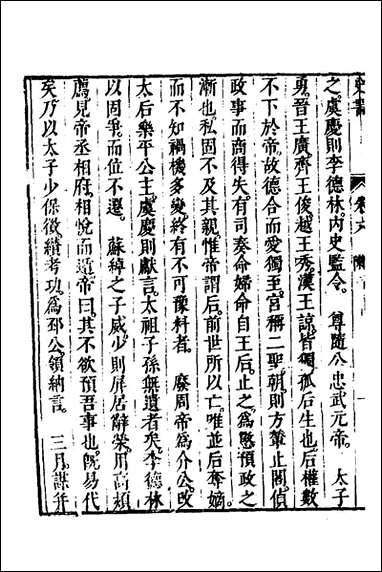 之虞慶則李德林。內史監令。 尊隨公忠武元帝。 太子
勇。晉王廣。齊王俊。越王秀。漢王諒。皆獨孤后生也。后權數
不下於帝。故德合而愛獨。至宮稱二聖。朝則方輦止閤。偵
政事而商得失。有司奏命婦命自王后。止之。為懲預政之
漸也。私固不及其親。惟帝謂后。前世所以亡。唯並后奪嫡。
而不知禍機多變。終有不可豫料者。 廢周帝為介公。改
太后樂平公主。虞慶則獻言。太祖子孫無遺者矣。李德林
以固爭。而位不遷。 蘇綽之子威。少則屏居辭榮。用高熲
薦。見帝丞相府。相悅而遁。帝曰。其不欲預吾事也。旣易代
矣。乃以太子少保徵。績考功為邳公。領納言。 三月。謀并